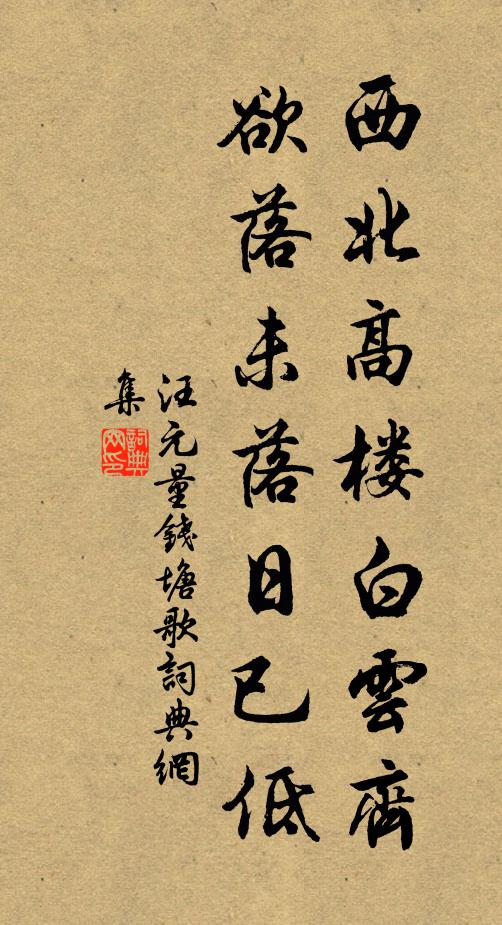 西北高楼白雲齊
欲落未落日已低
汪元量錢塘歌詞典網
集
詞典網印